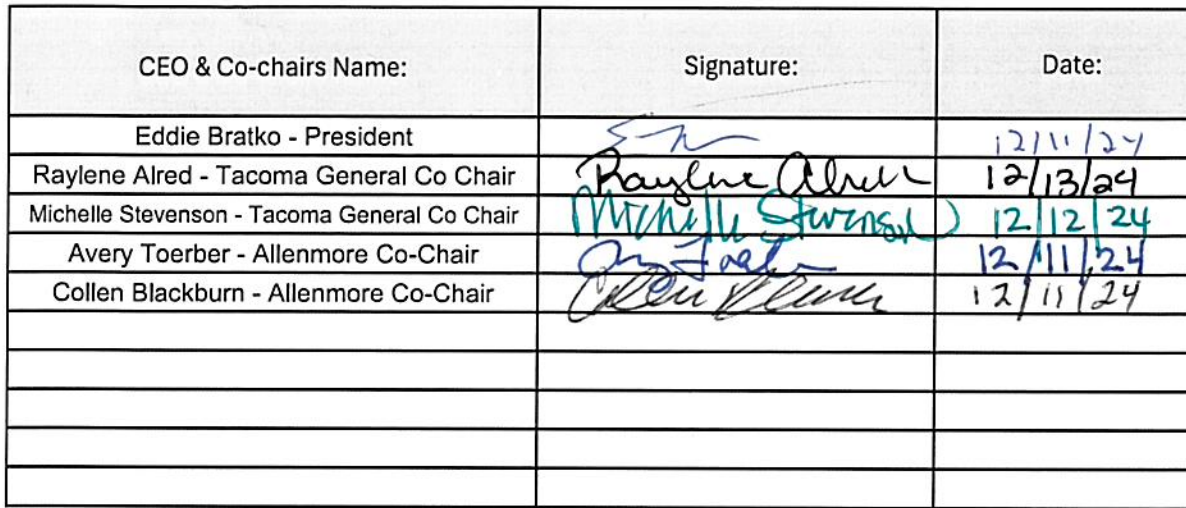 CEO & Co-chairs Name: Signature: Date:
Eddie Bratko - President 12/11/24
Raylene Alred - Tacoma General Co Chair Raylene Alred 12/13/24
Michelle Stevenson - Tacoma General Co Chair Michelle Stevenson 12/12/24
Avery Toerber - Allenmore Co-Chair 12/11/24
Collen Blackburn - Allenmore Co-Chair 12/11/24